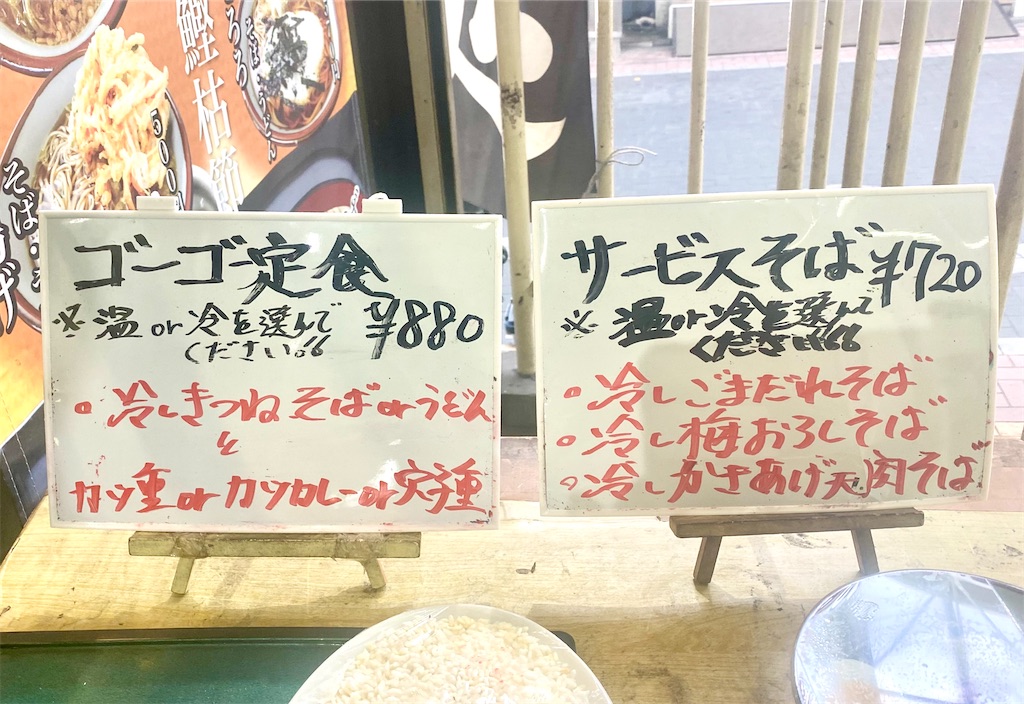 鰹枯節
500
そば
ゴーゴー定食
※温or冷を選んで
ください。
¥880
・冷しきつねそばorうどん
と
カツ重orカツカレーor玉子重
サービスそば ¥720
※温or冷を選んで
ください
・冷しごまだれそば
・冷し梅おろしそば
・冷しかきあげ天肉そば